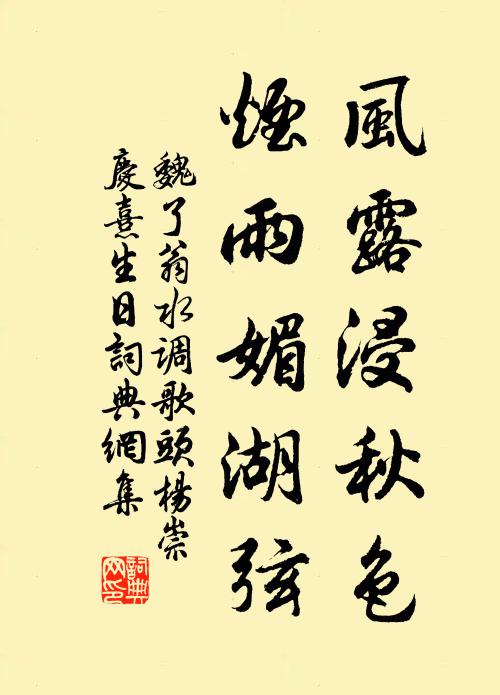 風露浸秋色
煙雨媚湖弦
魏了翁水调歌頭楊崇
慶熹生日詞典網集
詞典網印